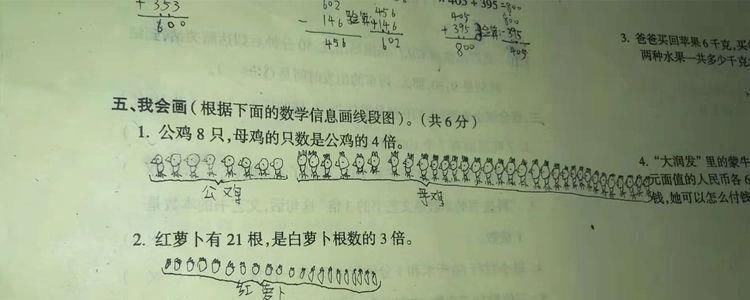 + 353
600
602
- 146
456
验算
456
+146
602
405 + 395 = 800
405
+ 395
800
验算
800
- 395
405
3. 爸爸买回苹果6千克,买
两种水果一共多少千克
五、我会画(根据下面的数学信息画线段图)。(共6分)
1. 公鸡8只,母鸡的只数是公鸡的4倍。
公鸡
母鸡
4. “大润发”里的蒙牛
元面值的人民币各6
钱,她可以怎么付钱
2. 红萝卜有21根,是白萝卜根数的3倍。
红萝卜